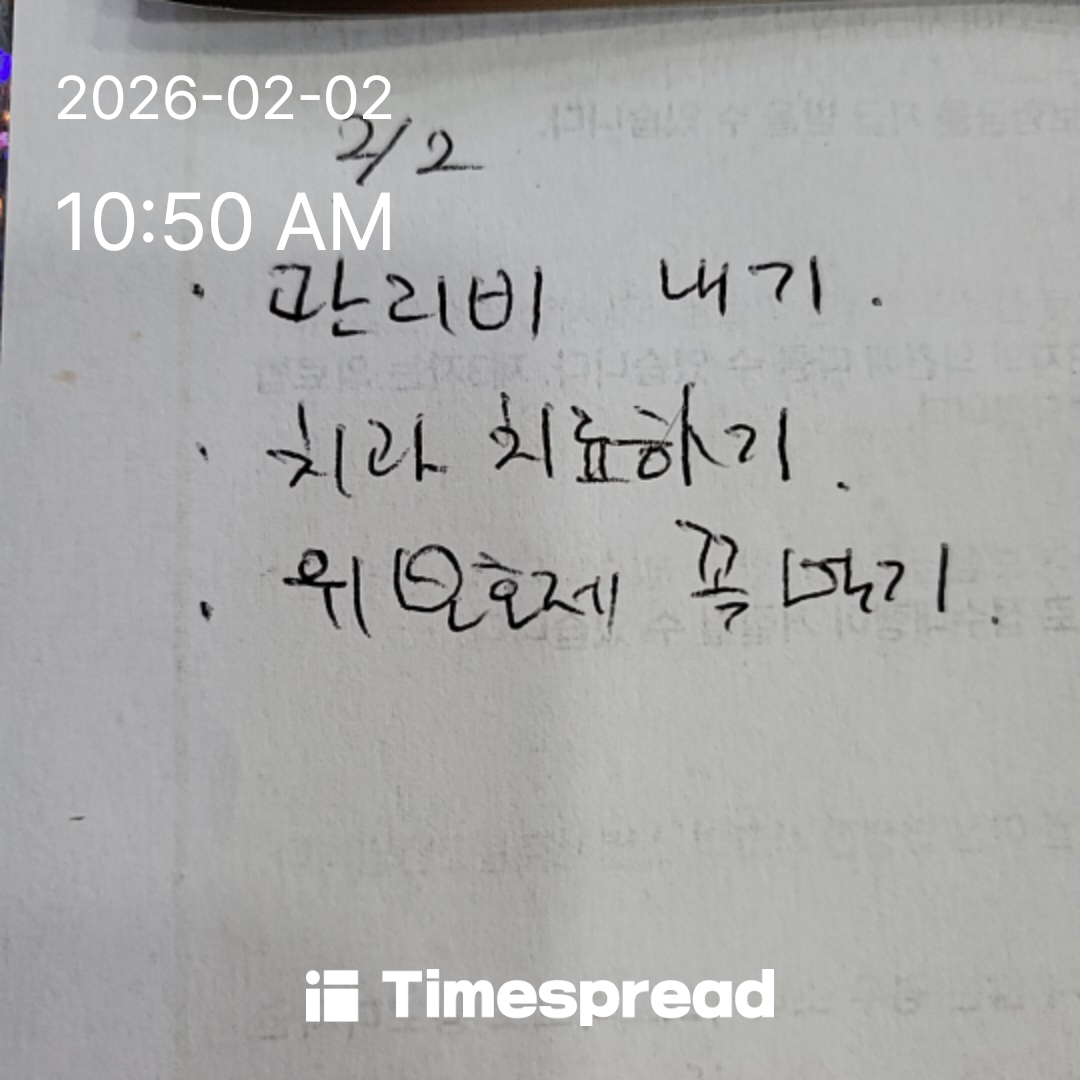 2026-02-02
2/2
10:50 AM
· 관리비 내기.
· 치과 치료하기.
· 위보호제 꼭 먹기.
Timespread